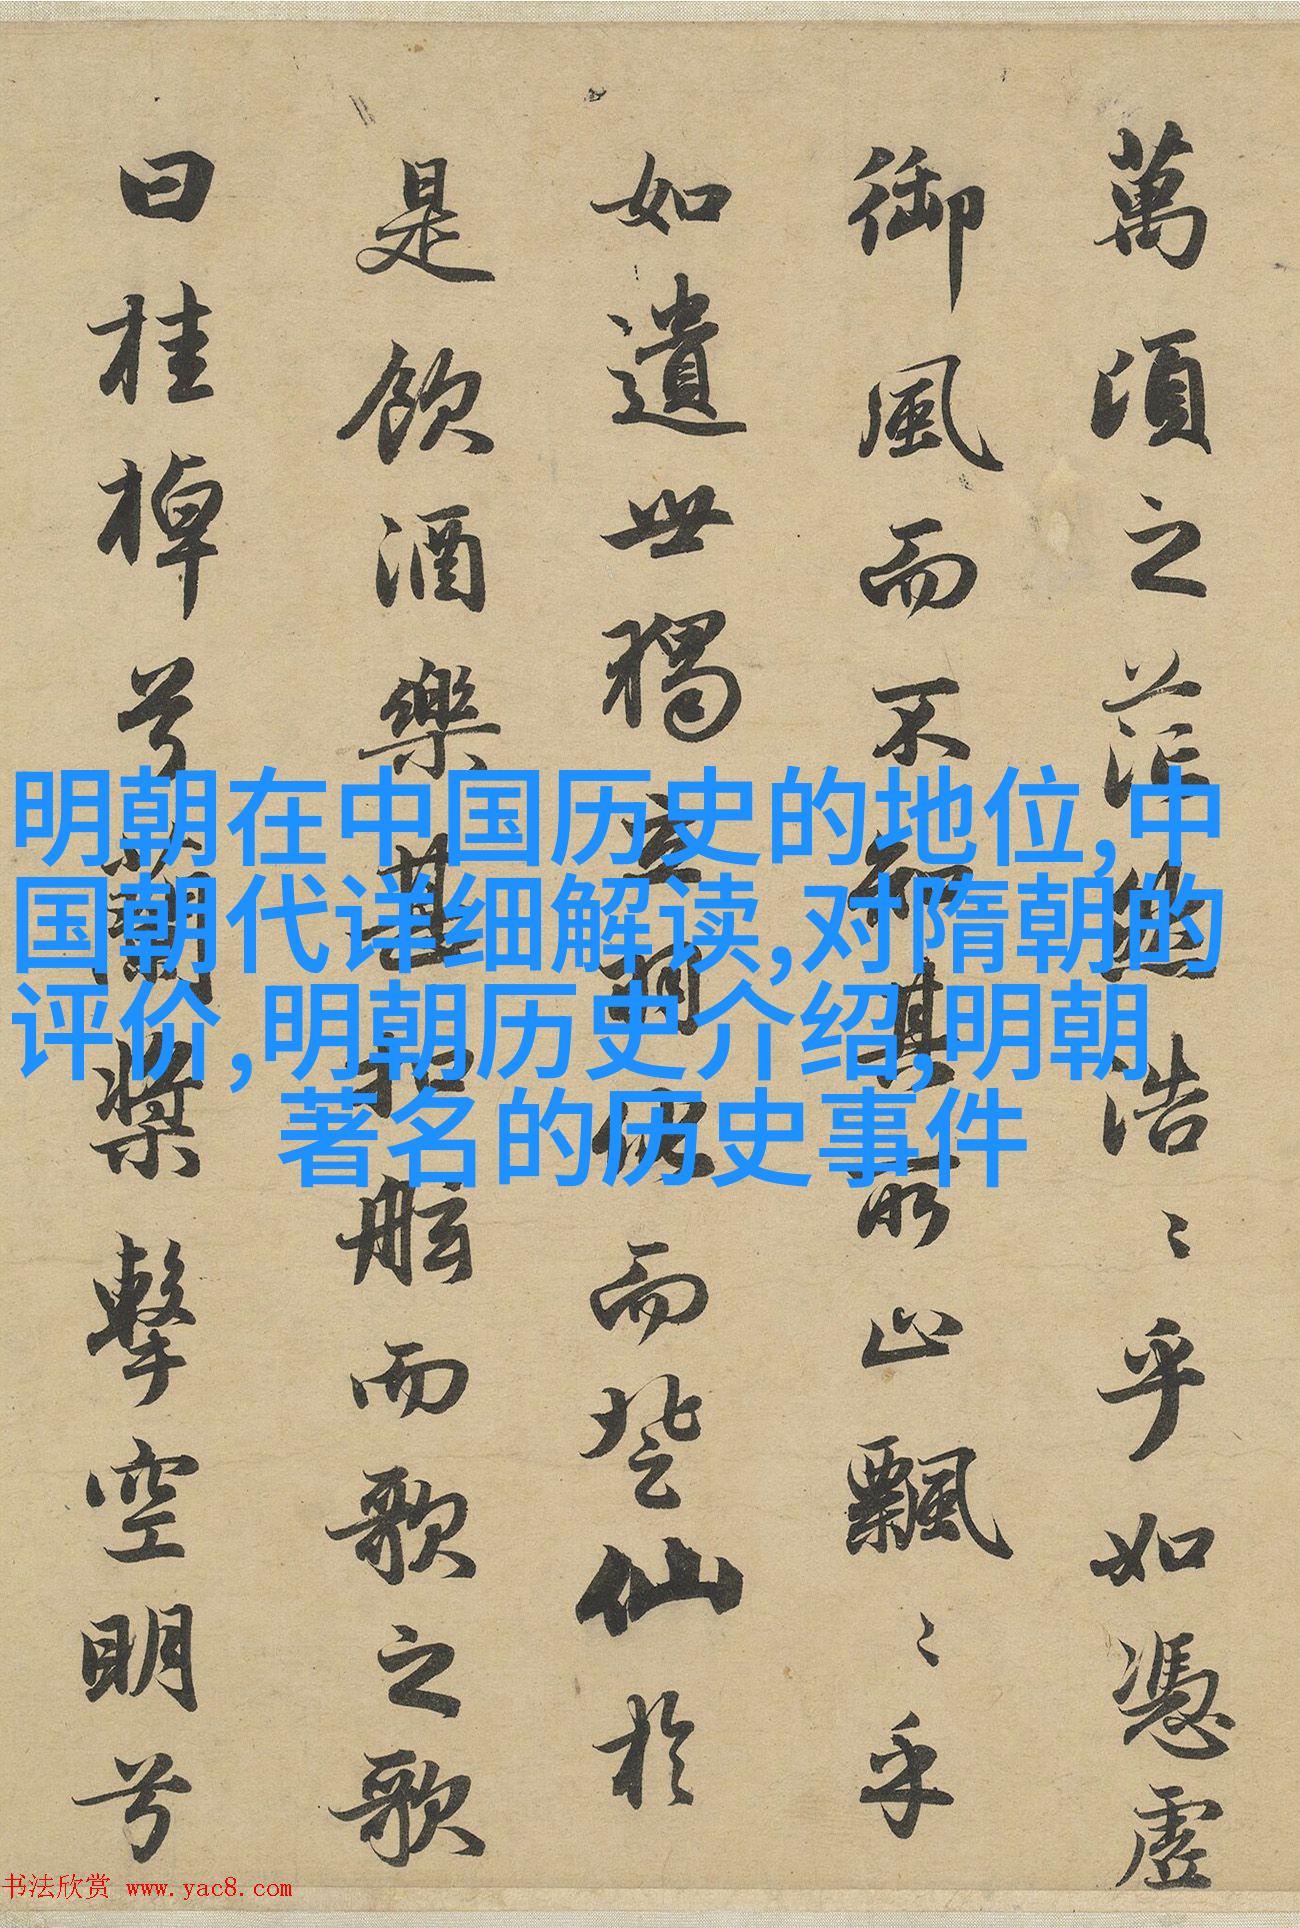 萬頃之茫然浩〻乎如憑虛
御風而不知其所止飄〻乎
如遺世獨立羽化而登仙於
是飲酒樂甚扣舷而歌之歌
曰桂棹兮蘭槳擊空明兮
明朝在中国历史的地位,中
国朝代详细解读,对隋朝的
评价,明朝历史介绍,明朝
著名的历史事件
书法欣赏 www.yac8.com